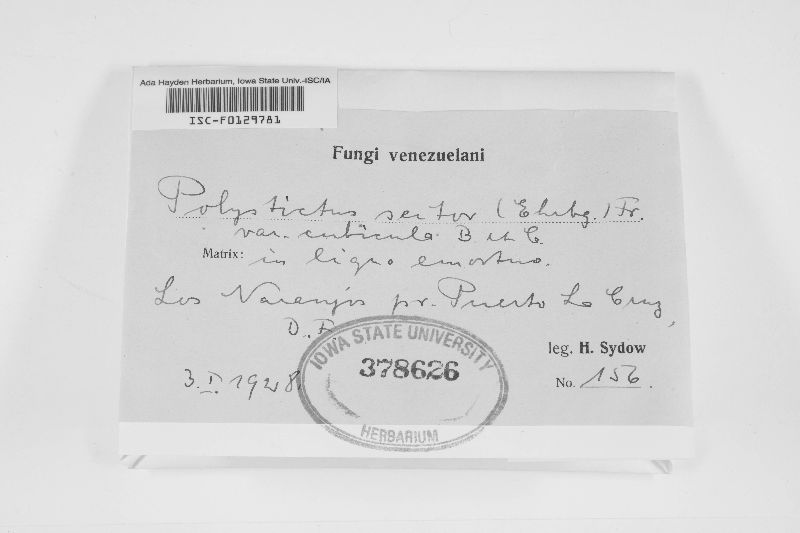 Ada Hayden Herbarium, Iowa State Univ.-ISC/IA
ISC-F0129781
Fungi venezuelani
Polystictus sector (Ehrbg.) Fr.
var. cubicula B. et C.
Matrix: in ligno emortuo.
Los Naranjos pr. Puerto La Cruz,
D. F.
leg. H. Sydow
3. I. 1928.
No. 156.
IOWA STATE UNIVERSITY
378626
HERBARIUM